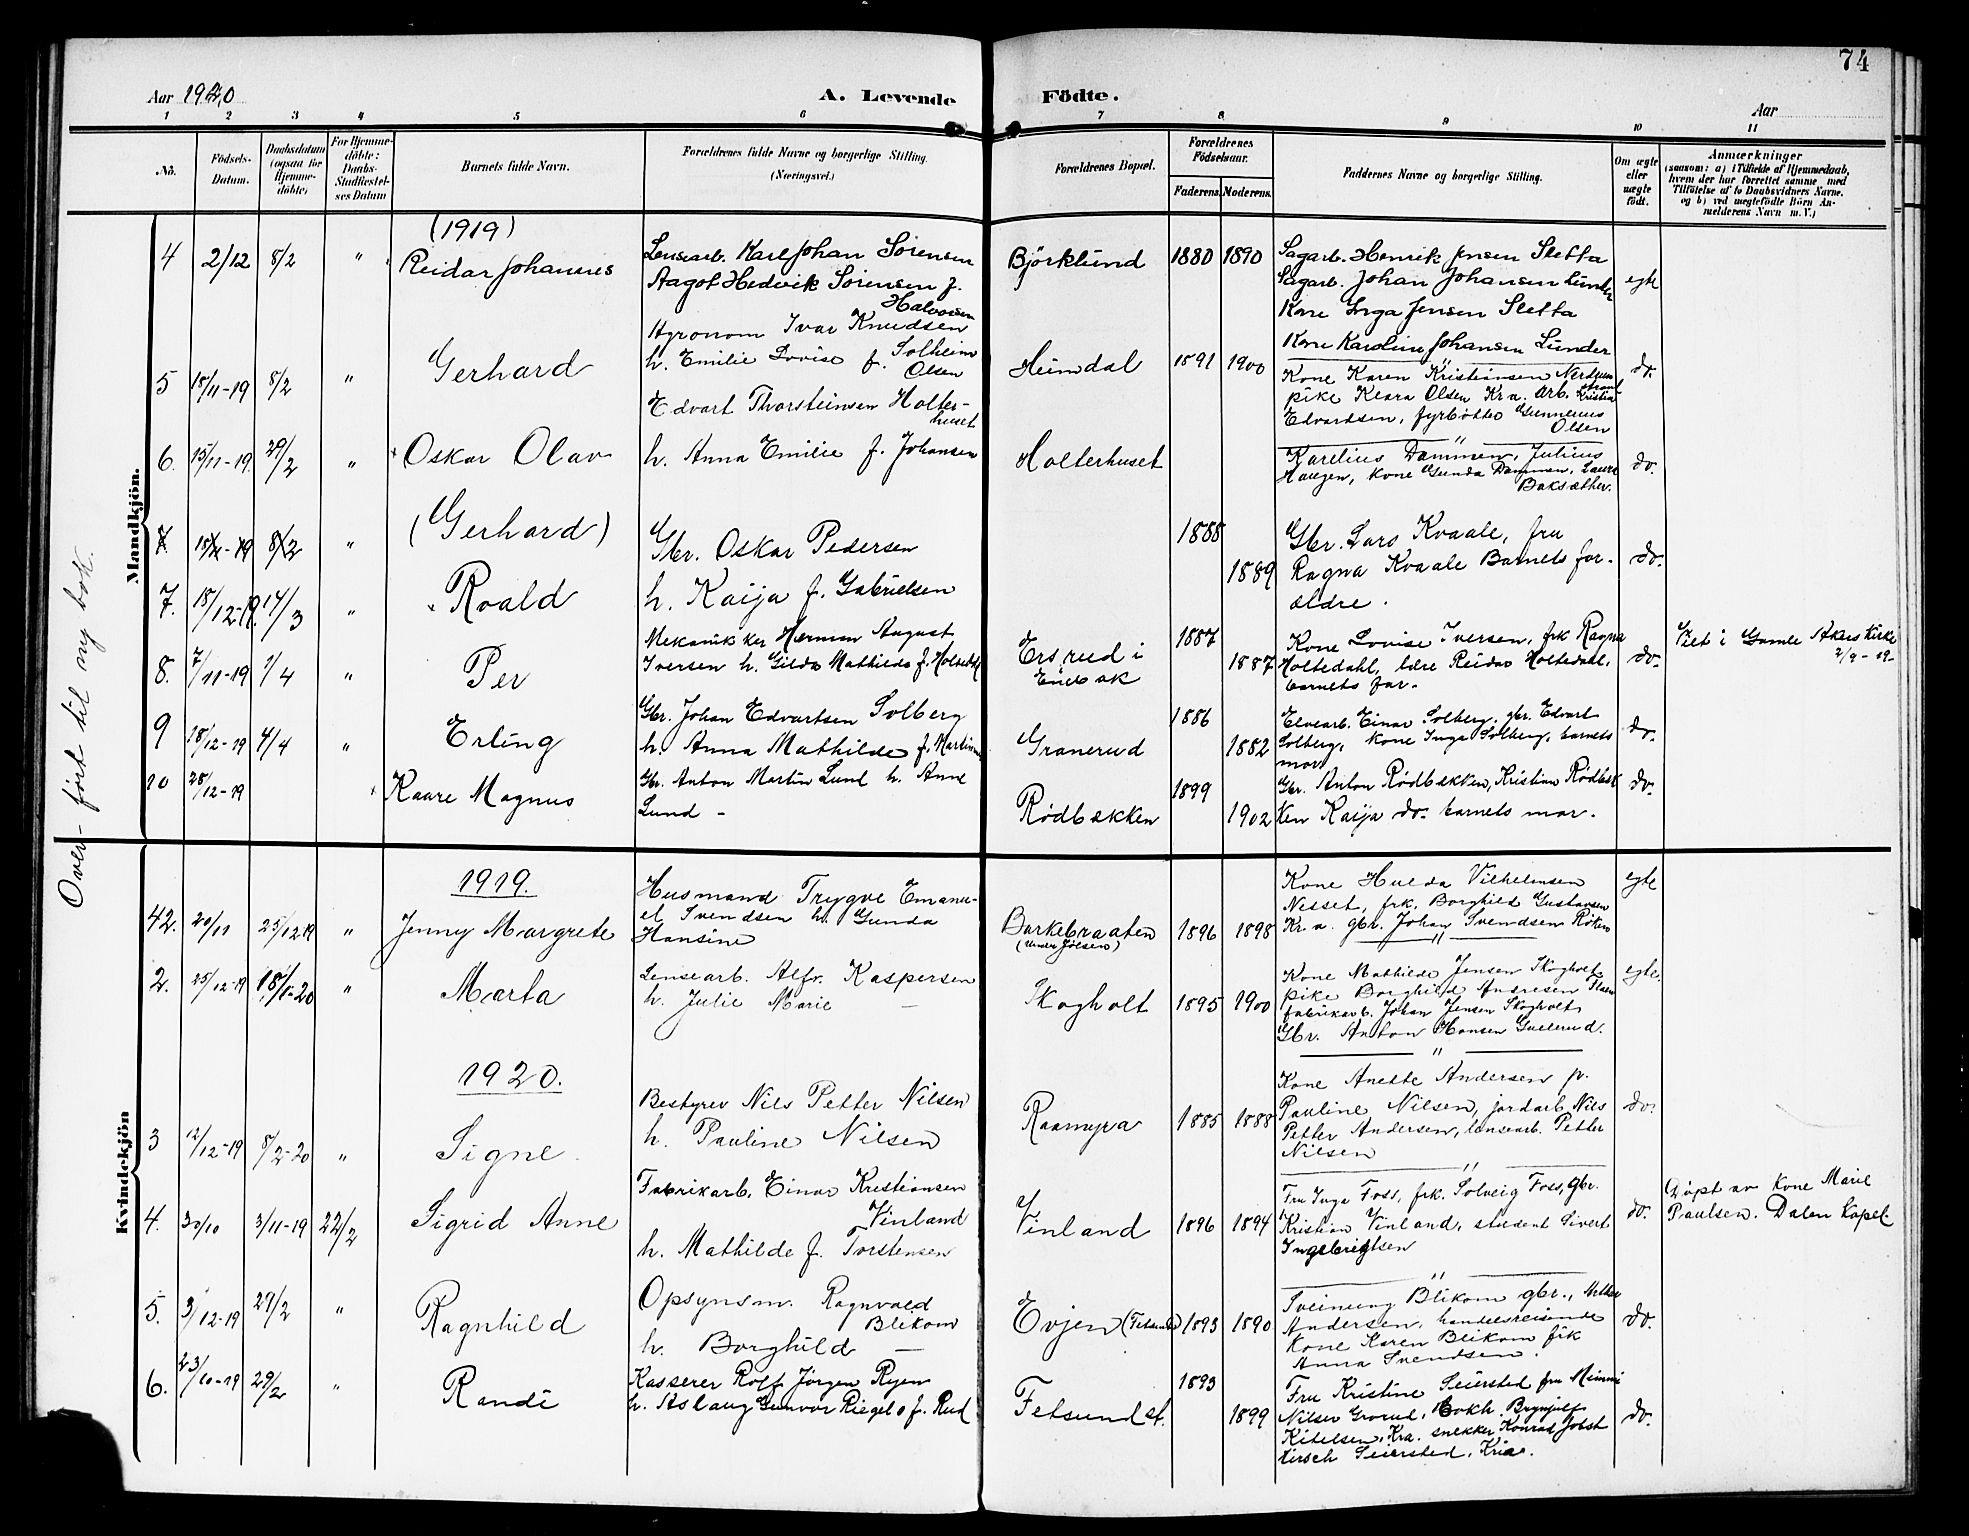 74
Aar 1920
A. Levende
Födte.
Aar
1 2 3 4 5 6 7 8 9 10 11
No.
Födsels-
Datum.
Daabsdatum
(ogsaa for
Hjemme-
döbte)
For Hjemme-
döbte:
Daabs-
Stadfæstel-
ses Datum
Barnets fulde Navn.
Forældrenes fulde Navne og borgerlige Stilling.
(Næringsvei.)
Forældrenes Bopæl.
Forældrenes
Födselsaar.
Faderens. Moderens.
Faddernes Navne og borgerlige Stilling.
Om ægte
eller
uægte
födt.
Anmærkninger
(saasom: a) i Tilfælde af Hjemmedaab,
hvem der har forrettet samme med
Tilföielse af to Daabsvidners Navne.
og b) ved uægtefödte Börn An-
melderens Navn m. V.)
Over-ført til ny bok.
Mandkjön.
(1919)
4 2/12 8/2 " Reidar Johannes
Lensearb. Karl Johan Sörensen
Aagot Hedvik Sörensen f.
Halvorsen
Björklund 1880 1890
Sagarb. Henrik Jensen Sletta
Sagarb. Johan Johansen Lunder
Kone Inga Jensen Sletta
Kone Karoline Johansen Lunder
egte
5 18/11-19 8/2 " Gerhard
Agronom Ivar Knudsen
Solheim
h. Emilie Lovise f. Olsen
Heimdal 1891 1900
Kone Karen Kristiansen
pike Klara Olsen Kr.a. Arb. Kristian
Edvardsen, fyrbøter Gunnerius
Olsen
do.
6. 15/11-19. 29/2 " Oskar Olav
Edvart Thorsteinsen Holter-
huset
h. Anna Emilie f. Johansen
Holterhuset
Karelius Dammen, Julius
Haugen, Kone Gunda Dammen, Laura
Baksæther.
do.
7. 8/2 " (Gerhard)
7. 18/12-19. 14/3 " Roald
Gbr. Oskar Pedersen
h. Kaija f. Gabrielsen
1888
1889
Gbr. Lars Kvaale, fru
Ragna Kvaale Barnets for-
ældre.
do.
8. 7/11-19 1/4 " Per
Mekanikker Herman August
Iversen h. Gilda Mathilda f. Holtedahl
Ersrud i
Enebak
1887
1887
Kone Lovise Iversen, frk Ragna
Holtedahl, lære Reidar Holtedahl,
barnets far.
do.
Viet i Gamle Akers Kirke
2/9-19-
9 18/12-19 4/4 " Erling
Gbr. Johan Edvartsen Solberg
h. Anna Mathilde f. Martinsen
Granerud
1886
1882
Elvearb. Einar Solberg, gbr. Edvart
Solberg, kone Inga Solberg, barnets
mor
do.
10 28/12-19 Kaare Magnus
Gbr. Anton Martin Lund h. Anna
Lund -
Rødbækken
1899
1902
Gbr. Anton Rødbækken, Kristian Rødbæk
ken Kaija do. barnets mor.
do.
Kvindekjön
1919.
42. 20/11 25/12 19 " Jenny Margrete
Husmand Trygve Emanu-
el Svendsen h. Gunda
Hansine
Barkebraaten
(under Jölsen)
1896 1898
Kone Hulda Vilhelmsen
Nesset, frk. Borghild Gustavsen
Kr.a. gbr. Johan Svendsen Røken
egte
2. 25/12-19 18/1-20 " Marta
Lensearb. Alfr. Kaspersen
h. Julie Marie —
Skogholt 1895 1900
Kone Mathilde Jensen Skogholt
pike Borghild Andresen
fabrikarb. Johan Jensen Skogholt
Gbr. Anton Hansen Gullerud.
egte.
1920.
3 12/12-19 8/2-20 " Signe.
Bestyrer Nils Petter Nilsen
h. Pauline Nilsen
Raamyra 1885 1888
Kone Anette Andersen p.
Pauline Nilsen, jordarb. Nils
Petter Andersen, lensearb. Petter
Nilsen
do.
4. 30/10 3/11-19 22/2 Sigrid Anne
Fabrikarb. Einar Kristiansen
Vinland
h. Mathilde f. Torstensen
Vinland 1896 1894
Fru Inga Foss, frk. Solveig Foss, gbr.
Kristian Vinland, student Sivert
Ingebrigtsen
do.
Døpt av Kone Marie
Paulsen. Dalen Kapel.
5. 3/12-19 29/2 " Ragnhild
Opsynsm. Ragnvald
Blikom
h. Borghild —
Evjen (Fetsund) 1893 1890
Sveinung Blikom gbr.,
Andersen, handelsreisende
Kone Karen Blikom frk
Anna Svendsen.
do.
6. 23/10-19 29/2 " Randi
Kasserer Rolf Jörgen Ryen
h. Aslaug Gunvor Riegels f. Rud
Fetsund st.
1893
1899
Fru Kristine Seiersted fru Mimmi
Nilsen Grorud, Bokh. Brynjulf
Kitelsen, Kra. snekker Konrad Jobst
Hirsch Seiersted, Kria.
do.